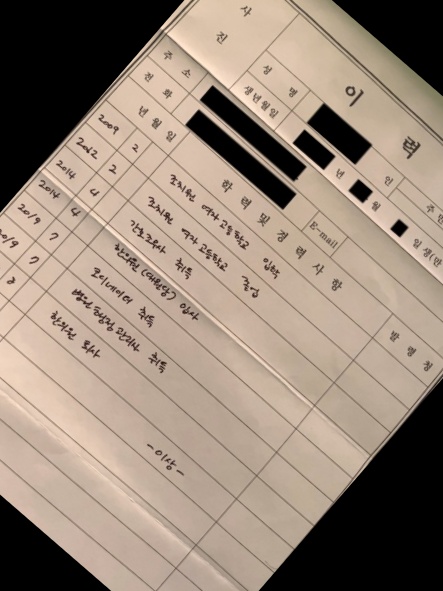 이 력
사 진
성 명
인
주민
생년월일
년 월 일생 (만
주 소
전 화
E-mail
년 월 일 학 력 및 경 력 사 항 발 령 청
2009 2 조치원 여자 고등학교 입학
2012 2 조치원 여자 고등학교 졸업
2014 4 간호조무사 취득
2014 4 한의원 (대원당) 입사
2019 7 코디네이터 취득
2019 7 병원행정관리사 취득
8 한의원 퇴사
- 이상 -